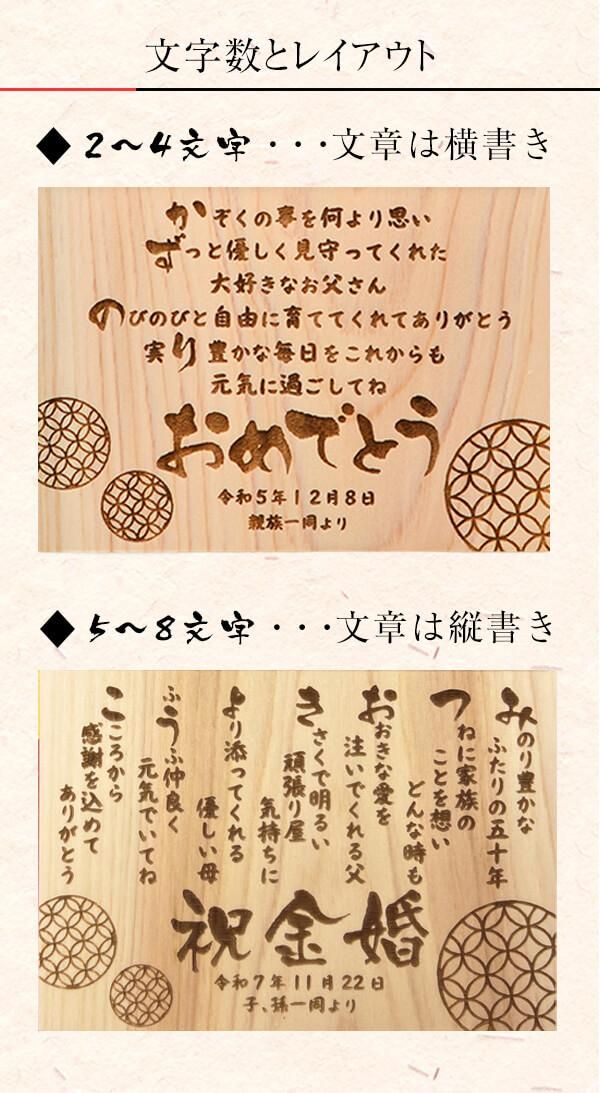 文字数とレイアウト
◆ 2〜4文字・・・文章は横書き
かぞくの事を何より思い
ずっと優しく見守ってくれた
大好きなお父さん
のびのびと自由に育ててくれてありがとう
実り豊かな毎日をこれからも
元気に過ごしてね
おめでとう
令和5年12月8日
親族一同より
◆ 5〜8文字・・・文章は縦書き
みのり豊かな
ふたりの五十年
つねに家族の
ことを想い
どんな時も
おおきな愛を
注いでくれる父
きさくで明るい
頑張り屋
気持ちに
より添ってくれる
優しい母
ふうふ仲良く
元気でいてね
こころから
感謝を込めて
ありがとう
祝金婚
令和7年11月22日
子、孫一同より